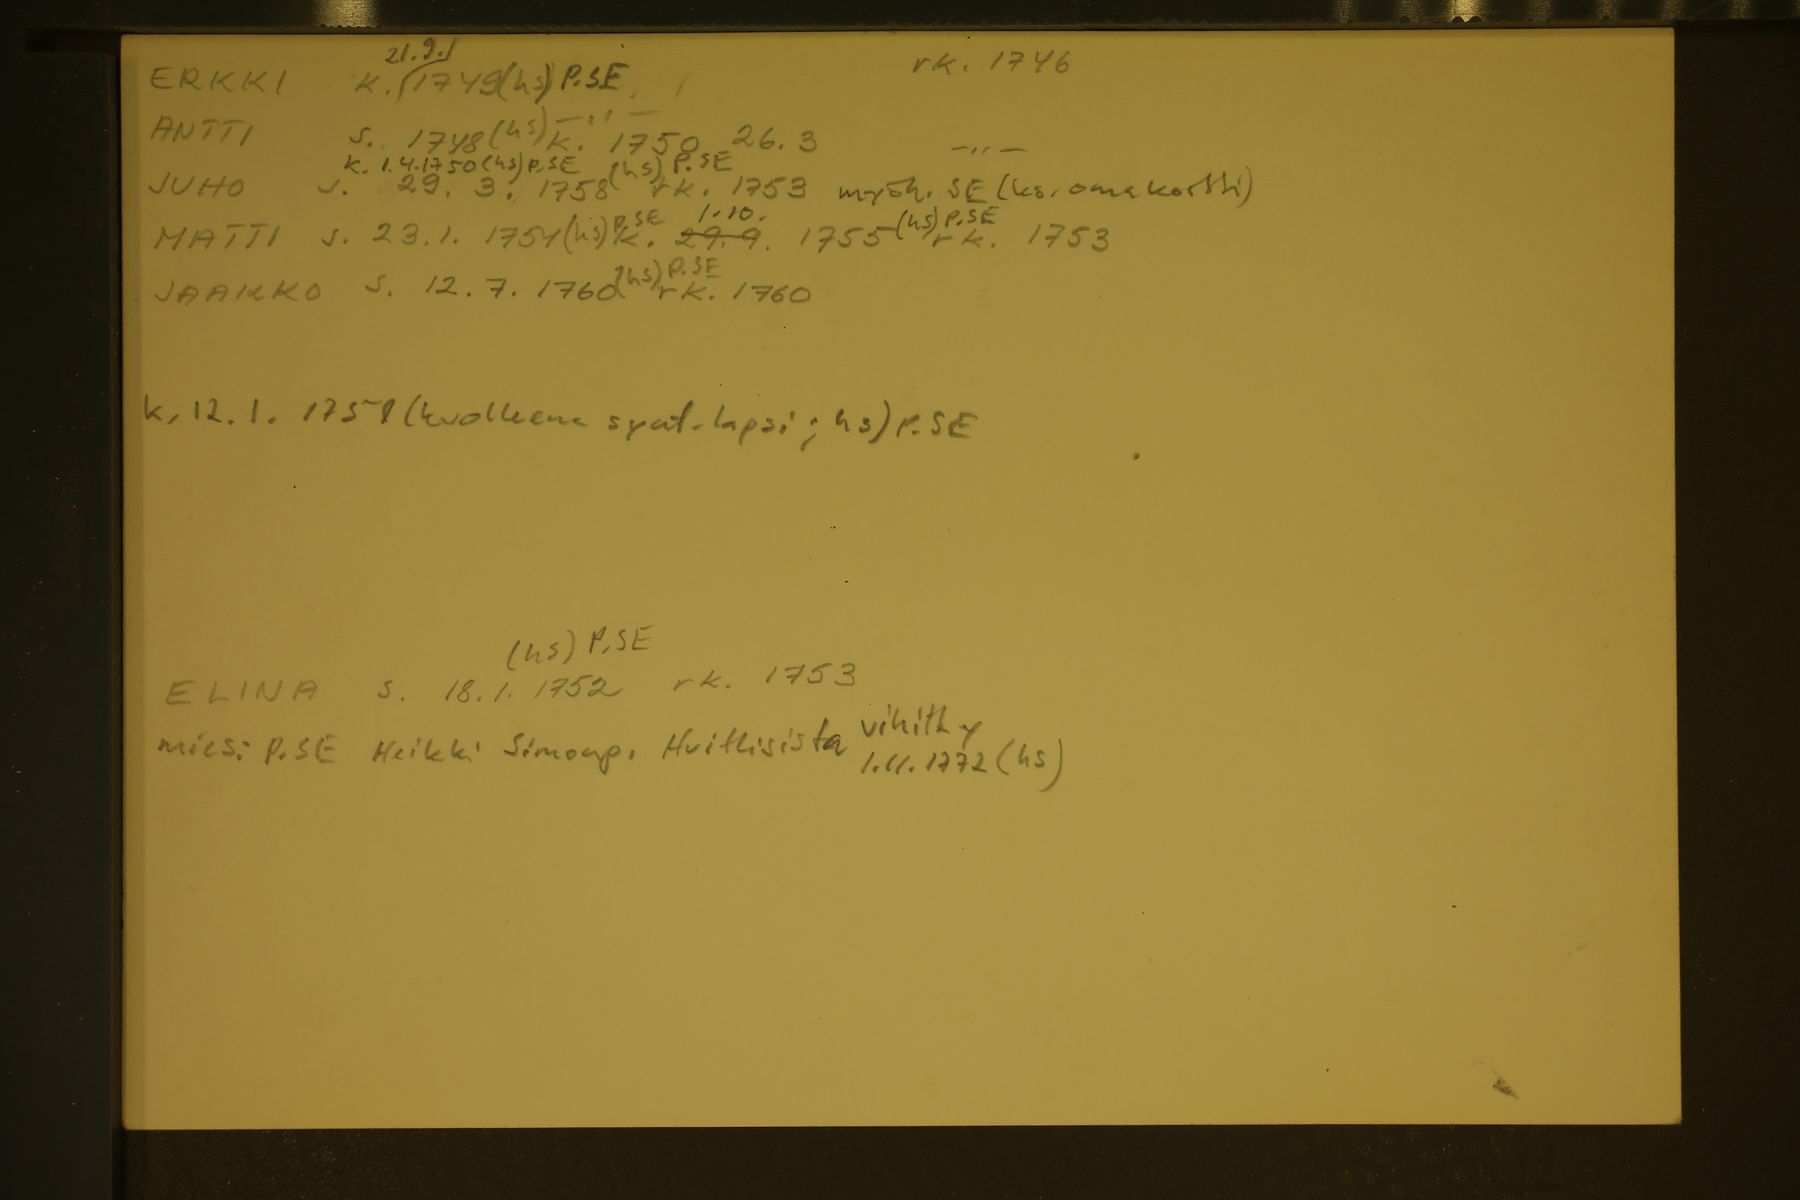 21.9.
ERKKI k. 1749 (hs) P.SE rk. 1746
ANTTI s. 1748 (hs) -„- k. 1750 26.3 -„-
k. 1.4.1750 (hs) P.SE (hs) P.SE
JUHO s. 29. 3. 1758 rk. 1753 myöh. SE (ks. omakortti)
P.SE 1.10. (hs) P.SE
MATTI s. 23.1. 1754 (hs) k. 29.9. 1755 rk. 1753
(hs) P.SE
JAAKKO s. 12. 7. 1760 rk. 1760
k. 12. 1. 1751 (kuolleena synt. lapsi ; hs) P.SE
(hs) P.SE
ELINA s. 18. 1. 1752 rk. 1753
mies: P.SE Heikki Simonp. Huittisista vihitty
1.11.1772 (hs)